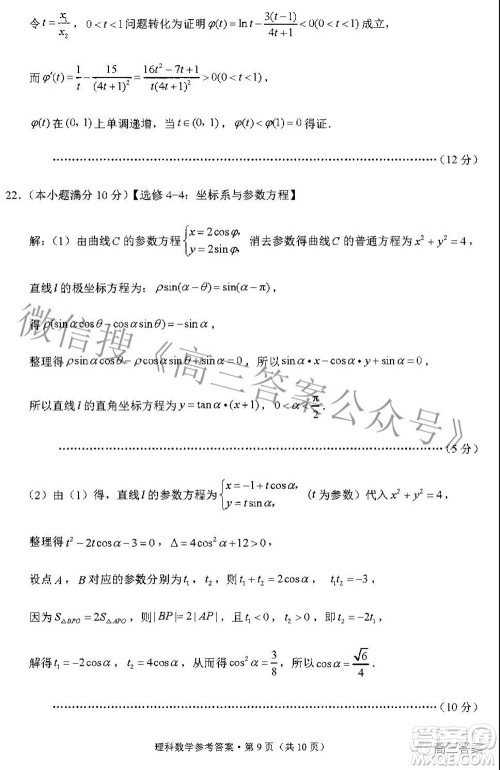 令 t = x₁/x₂，0 < t < 1 问题转化为证明 φ(t) = ln t − 3(t−1)/(4t+1) 成立，
而 φ′(t) = 1/t − 15/(4t+1)² = (16t²−7t+1)/(4t+1)² > 0(0 < t < 1)，
φ(t) 在 (0, 1) 上单调递增，当 t∈(0, 1)，φ(t) < φ(1) = 0 得证．
……………………………………………………………………（12 分）
22．（本小题满分 10 分）【选修 4-4：坐标系与参数方程】
解：（1）由曲线 C 的参数方程 {x = 2cosφ, y = 2sinφ, 消去参数得曲线 C 的普通方程为 x² + y² = 4，
直线 l 的极坐标方程为：ρsin(α−θ) = sin(α−π)，
得 ρ(sinαcosθ − cosαsinθ) = −sinα，
整理得 ρsinαcosθ − ρcosαsinθ + sinα = 0，所以 sinα•x − cosα y + sinα = 0，
所以直线 l 的直角坐标方程为 y = tanα•(x+1)，0 < α < π/2．
……………………………………………………………………（5 分）
（2）由（1）得，直线 l 的参数方程为 {x = −1 + t cosα, y = t sinα, （t 为参数）代入 x² + y² = 4，
整理得 t² − 2t cosα − 3 = 0，Δ = 4cosα + 12 > 0，
设点 A，B 对应的参数分别为 t₁，t₂，
因为 S△BPO = 2S△APO，则 |BP| = 2|AP|，且 t₁ < 0，t₂ > 0，即 t₂ = −2t₁，
解得 t₁ = −2cosα，t₂ = 4cosα，从而得 cos²α = 3/8，所以 cosα = √6/4．
……………………………………………………………………（10 分）
理科数学参考答案・第 9 页（共 10 页）
微信搜《高三答案公众号》
高三答案